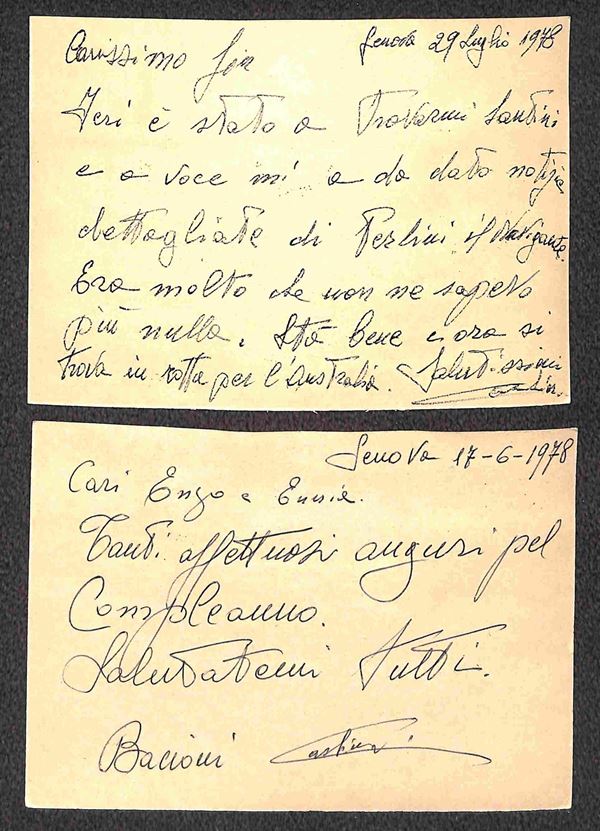 Carissimo
Genova 29 Luglio 1978
Ieri è stato a trovarmi Santini
e a voce mi a da dato notizie
dettagliate di Terlini il Navigante.
Era molto che non ne sapevo
più nulla. Stà bene e ora si
trova in rotta per l'Australia. Salutissimi
Genova 17-6-1978
Cari Enzo e Ennie.
Tanti affettuosi auguri pel
Compleanno.
Salutatemi Tutti.
Bacioni